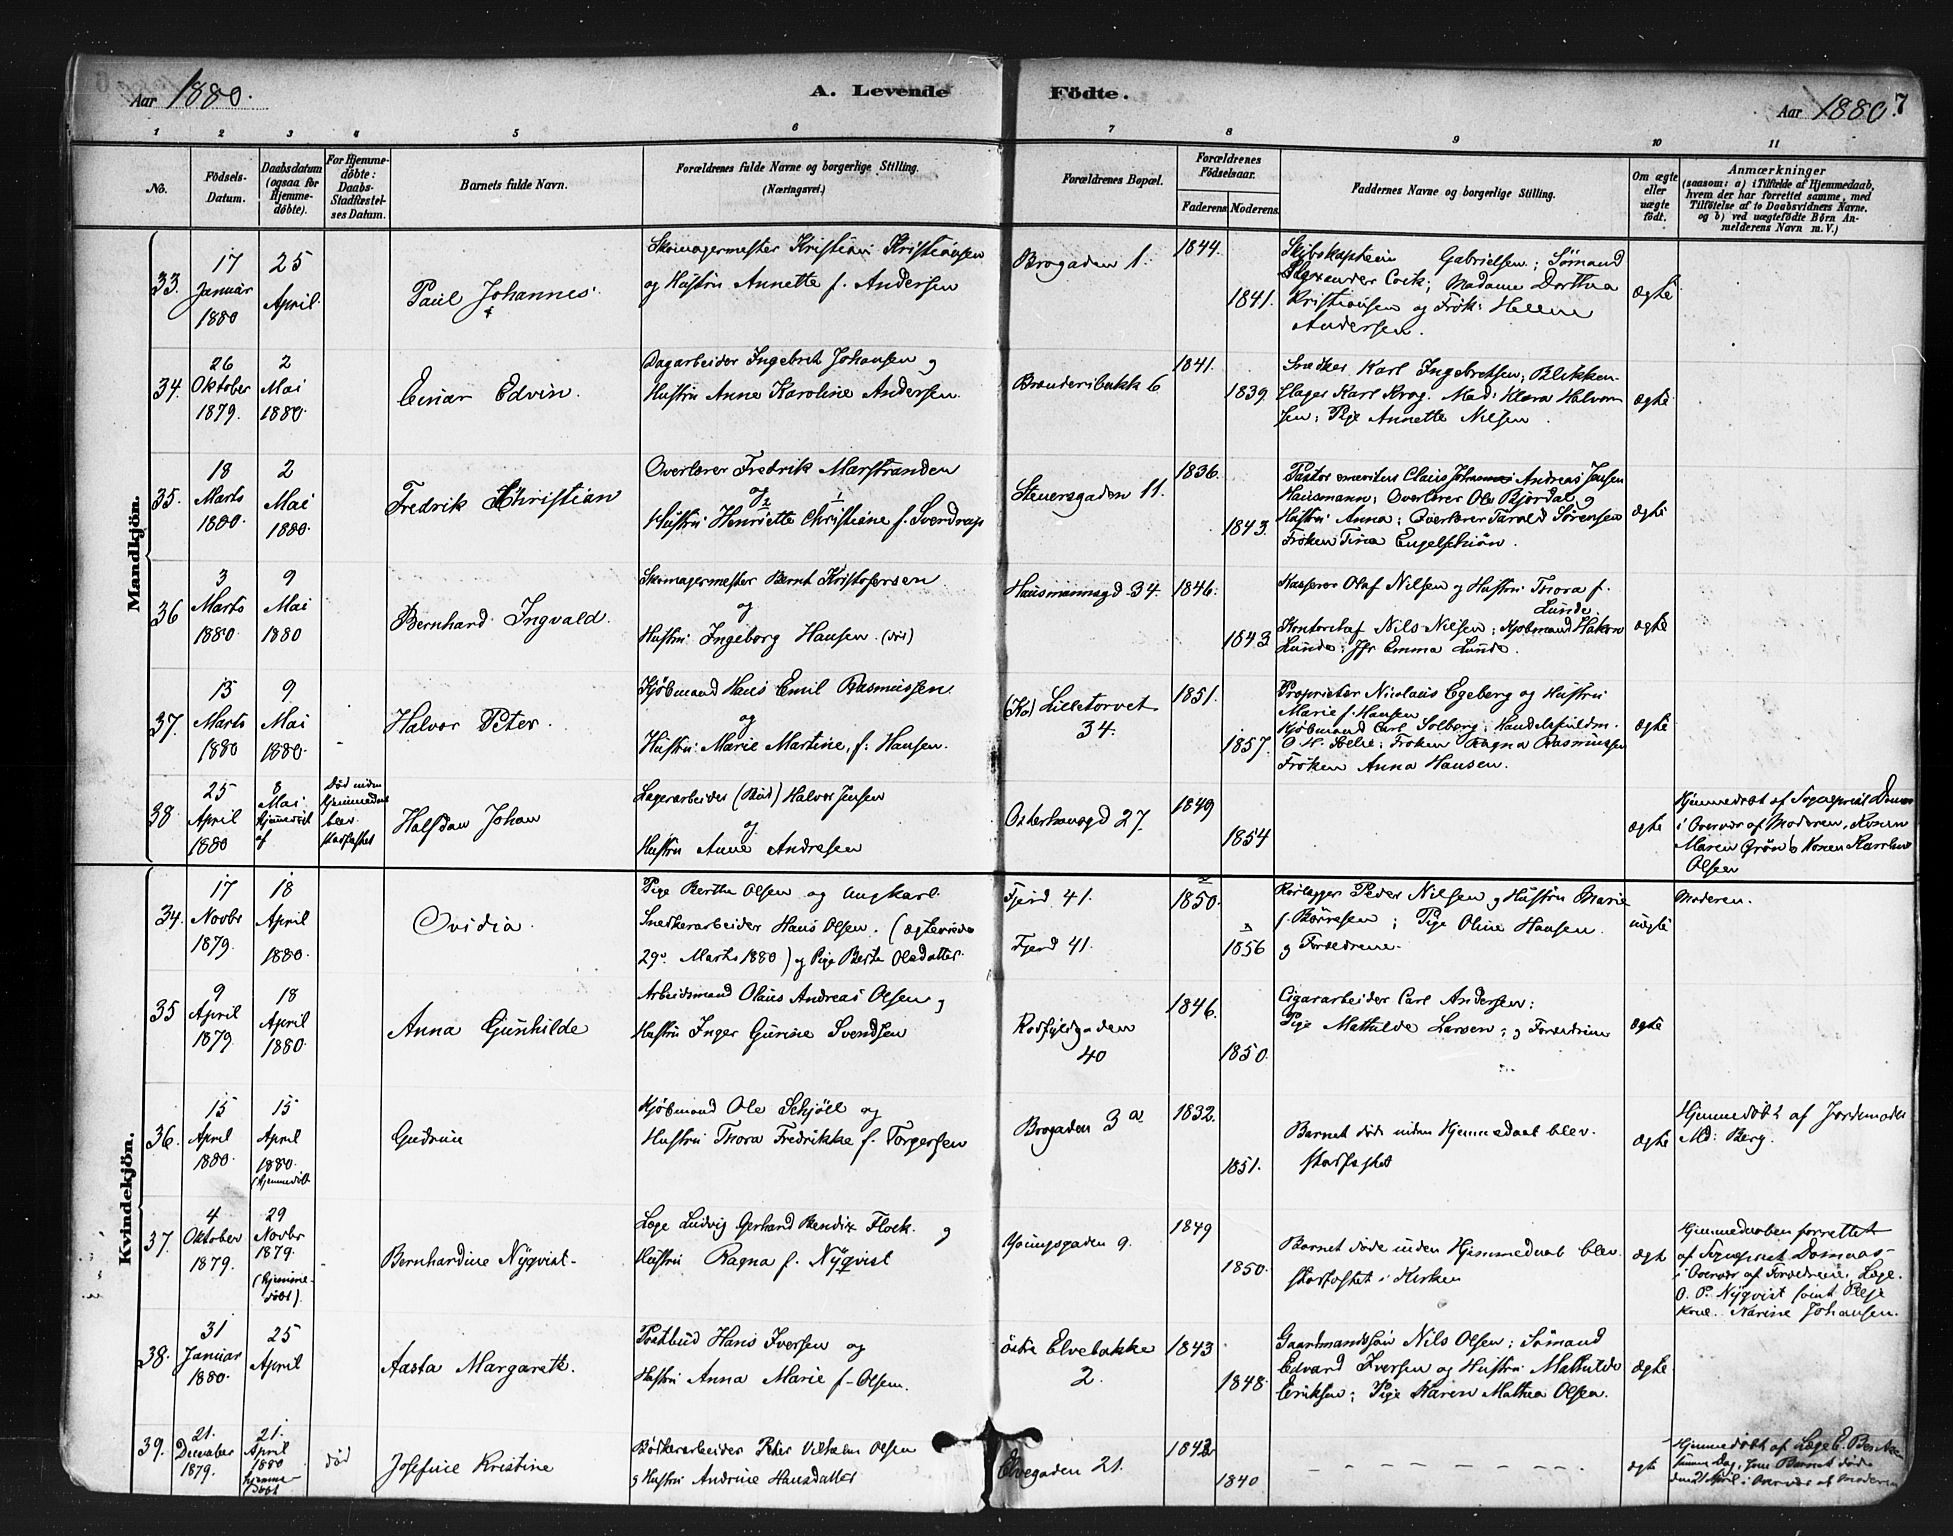 Aar 1880.
A. Levende Födte.
Aar 1880. 7
1 2 3 4 5 6 7 8 9 10 11
No.
Födsels-
Datum.
Daabsdatum
(ogsaa for
Hjemme-
döbte).
For Hjemme-
döbte:
Daabs-
Stadfæstel-
ses Datum.
Barnets fulde Navn.
Forældrenes fulde Navne og borgerlige Stilling.
(Næringsvei.)
Forældrenes Bopæl.
Forældrenes
Födselsaar.
Faderens. Moderens.
Faddernes Navne og borgerlige Stilling.
Om ægte
eller
uægte
födt.
Anmærkninger
(saasom: a) i Tilfælde af Hjemmedaab,
hvem der har forrettet samme, med
Tilföielse af to Daabsvidners Navne,
og b) ved uægtefödte Börn An-
melderens Navn m. V.)
Mandkjön.
33.
17
Januar
1880
25
April.
Paul Johannes.
Skomagermester Kristian Kristiansen
og Hustru Annette f. Andersen
Brogaden 1.
1844.
1841.
Skibskaptein Gabrielsen; Sømand
Alexander Cock; Madame Dorthea
Kristiansen og Frøk: Helene
Andersen.
ægte
34.
26
Oktober
1879.
2
Mai
1880.
Einar Edvin.
Dagarbeider Ingebret Johansen og
Hustru Anne Karoline Andersen.
Brenderibakk 6
1841.
1839.
Snedker Karl Ingebretsen; Blikken-
slager Karl Krog. Mad: Klara Halvor-
sen; Pige Annette Nilsen.
ægte
35.
18
Marts
1880.
2
Mai
1880.
Fredrik Christian
Overlærer Fredrik Marstranden
og
Hustru Henriette Christiane f. Sverdrup
Steuersgaden 11.
1836.
1843.
Pastor emeritus Claus Johannes Andreas Jensen
Hausmann; Overlærer Ole Bjørdal og
Hustru Anna; Overlærer Tarald Sørensen
Frøken Tina Engelschiøn.
ægte
36
3
Marts
1880.
9
Mai
1880
Bernhard Ingvald.
Skomagermester Bernt Kristofersen
og
Hustru Ingeborg Hansen.
Hausmannsgd 34.
1846.
1843
Kasserer Olaf Nilsen og Hustru Thora f.
Lunde.
Kontorchef Nils Nilsen; Kjøbmand Hakon
Lunde; Jfr Emma Lunde.
ægte
37.
13
Marts
1880
9
Mai
1880.
Halvor Peter.
Kjøbmand Hans Emil Rasmussen.
og
Hustru Marie Martine, f. Hansen.
Lilletorvet
34.
1851.
1857.
Proprietær Nicolaus Egeberg og Hustru
Marie f. Hansen
Kjøbmand Carl Solberg; Handelsfuldm.
Frøken Ragna Rasmussen
Frøken Anna Hansen.
ægte
38
25
April
1880
8
Mai
Hjemmedøbt
af
Død inden
Hjemmedaab
blev
stadfæstet
Halfdan Johan
Lagerarbeider (Bud) Halvor Jensen
og
Hustru Anne Andresen
Osterhausgd 27.
1849
1854
ægte
Hjemmedøbt af Sogneprest
i Overvær af Moderen, Konen
Maren Grøn & Konen Karoline
Olsen
Kvindekjön.
34.
17
Novbr
1879.
18
April
1880.
Ovidia.
Pige Berthe Olsen og Ungkarl
Snedkerarbeider Hans Olsen. (ægteviede
29. Marts 1880) og Pige Berte Olsdatter.
Fjerd 41.
Fjerd 41.
1850.
1856
Rørlægger Peder Nilsen og Hustru Marie
f. Børresen; Pige Oline Hansen.
og Forældrene.
uægte
Moderen.
35
9
April
1879.
18
April
1880.
Anna Gunhilde
Arbeidsmand Olaus Andreas Olsen og
Hustru Inger Gurine Svendsen
Rodfyldgaden
40
1846.
1850.
Cigararbeider Carl Andersen;
Pige Mathilde Larsen; og Forældrene
ægte
36.
15
April
1880.
15
April
1880.
(Hjemmedøbt
Gudrun
Kjøbmand Ole Schjøll og
Hustru Thora Fredrikke f. Torgersen
Brogaden 3 a
1832.
1851.
Barnet døde inden Hjemmedaab blev
stadfæstet
ægte
Hjemmedøbt af Jordemoder
Md: Berg.
37.
4
Oktober
1879.
29
Novbr
1879.
(Hjemme-
døbt).
Bernhardine Nyqvist.
Læge Ludvig Gerhard Bendix Flock. og
Hustru Ragna f. Nyqvist
Youngsgaden 9.
1849
1850.
Barnet døde inden Hjemmedaab blev
stadfæstet i Kirken
ægte
Hjemmedaaben forrettet
af Sogneprest Domaas-
i Overvær af Forældrene, Læge
O. P. Nyqvist samt Pleje
kone. Narine Johansen.
38.
31
Januar
1880.
25
April
Aasta Margareth.
Postbud Hans Iversen og
Hustru Anna Marie f. Olsen.
østre Elvebakke
2.
1843
1848.
Gaardmandssøn Nils Olsen; Sømand
Edvard Iversen og Hustru Mathilde
Eriksen; Pige Karen Mathea Olsen.
ægte
39.
21.
December
1879.
21.
April
1880
hjemme-
døbt
død
Josefine Kristine
Bødkerarbeider Peter Vilhelm Olsen
og Hustru Andrine Hansdatter
Elvegaden 21.
1842
1840
ægte
Hjemmedøbt af Læge E. Bentzen
samme Dag, som Barnet døde
den 21 April i Overvær af Moderen